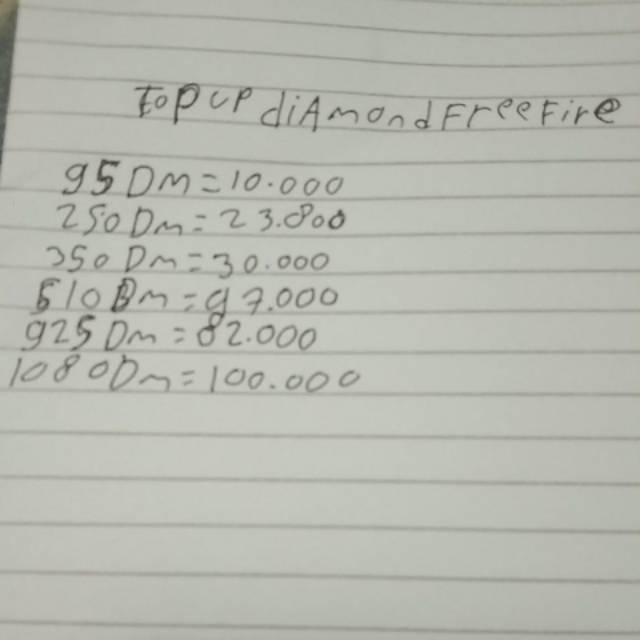 Top UP diAmond FreeFire
95 Dm = 10.000
250 Dm = 23.800
350 Dm = 30.000
510 Dm = 97.000
925 Dm = 82.000
1080 Dm = 100.000